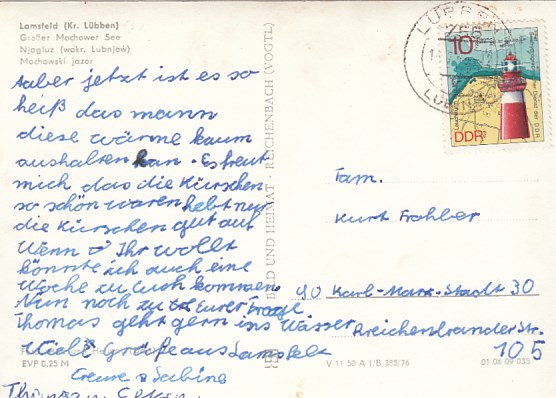 Lamsfeld (Kr. Lübben)
Großer Mochower See
Njagluz (wokr. Lubnjow)
Mochowski jazor
Aaber jetzt ist es so
heiß das mann
diese wärme kaum
aushalten kan. Es freut
mich das die Kürschen
so schön waren hebt nur
die Kürschen gut auf
Wenn Ihr wollt
könnte ich auch eine
Woche zu Euch kommen.
Nun noch zu Eurer Frage
Thomas geht gern ins Wasser
Viele Grüße aus Lamsfeld
Sabine
Thomas
EVP 0,25 M
BILD UND HEIMAT · REICHENBACH (VOGTL)
V 11 50 A 1/B 365/76
01 06 09 035
LÜBBEN
10
DDR
Fam.
Kurt Frohber
90 Karl-Marx-Stadt 30
Reichenbrander Str.
105